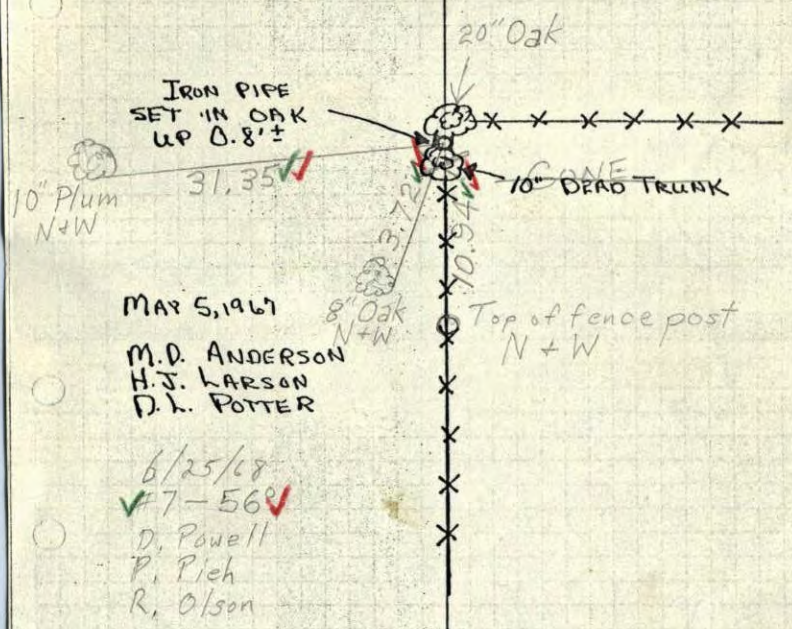 20" Oak
IRON PIPE
SET IN OAK
UP 0.8'±
10" Plum
N+W
31.35
GONE
10" DEAD TRUNK
3.72
10.94
8" Oak
N+W
Top of fence post
N + W
MAY 5, 1967
M.D. ANDERSON
H.J. LARSON
D.L. POTTER
6/25/68
#7-56°
D. Powell
P. Pieh
R. Olson